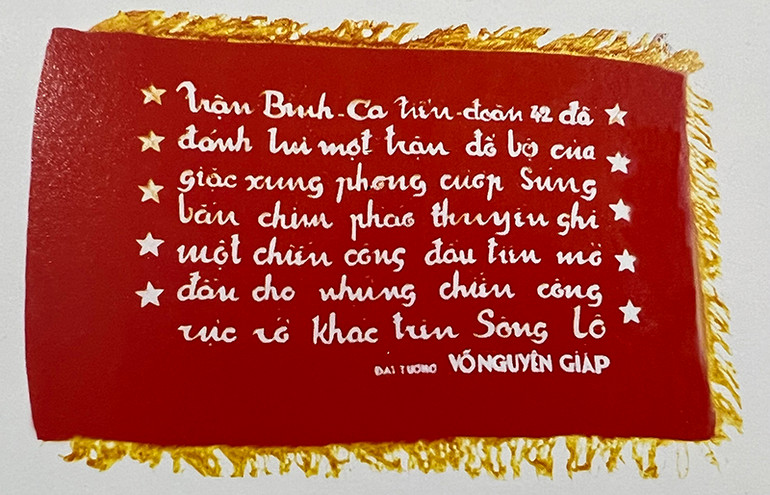 Trận Bình-Ca tiểu-đoàn 42 đã
đánh lui một trận đổ bộ của
giặc xung phong cướp súng
bắn chìm pháo thuyền ghi
một chiến công đầu tiên mở
đầu cho những chiến công
rực rỡ khác trên Sông Lô
ĐẠI TƯỚNG VÕ NGUYÊN GIÁP